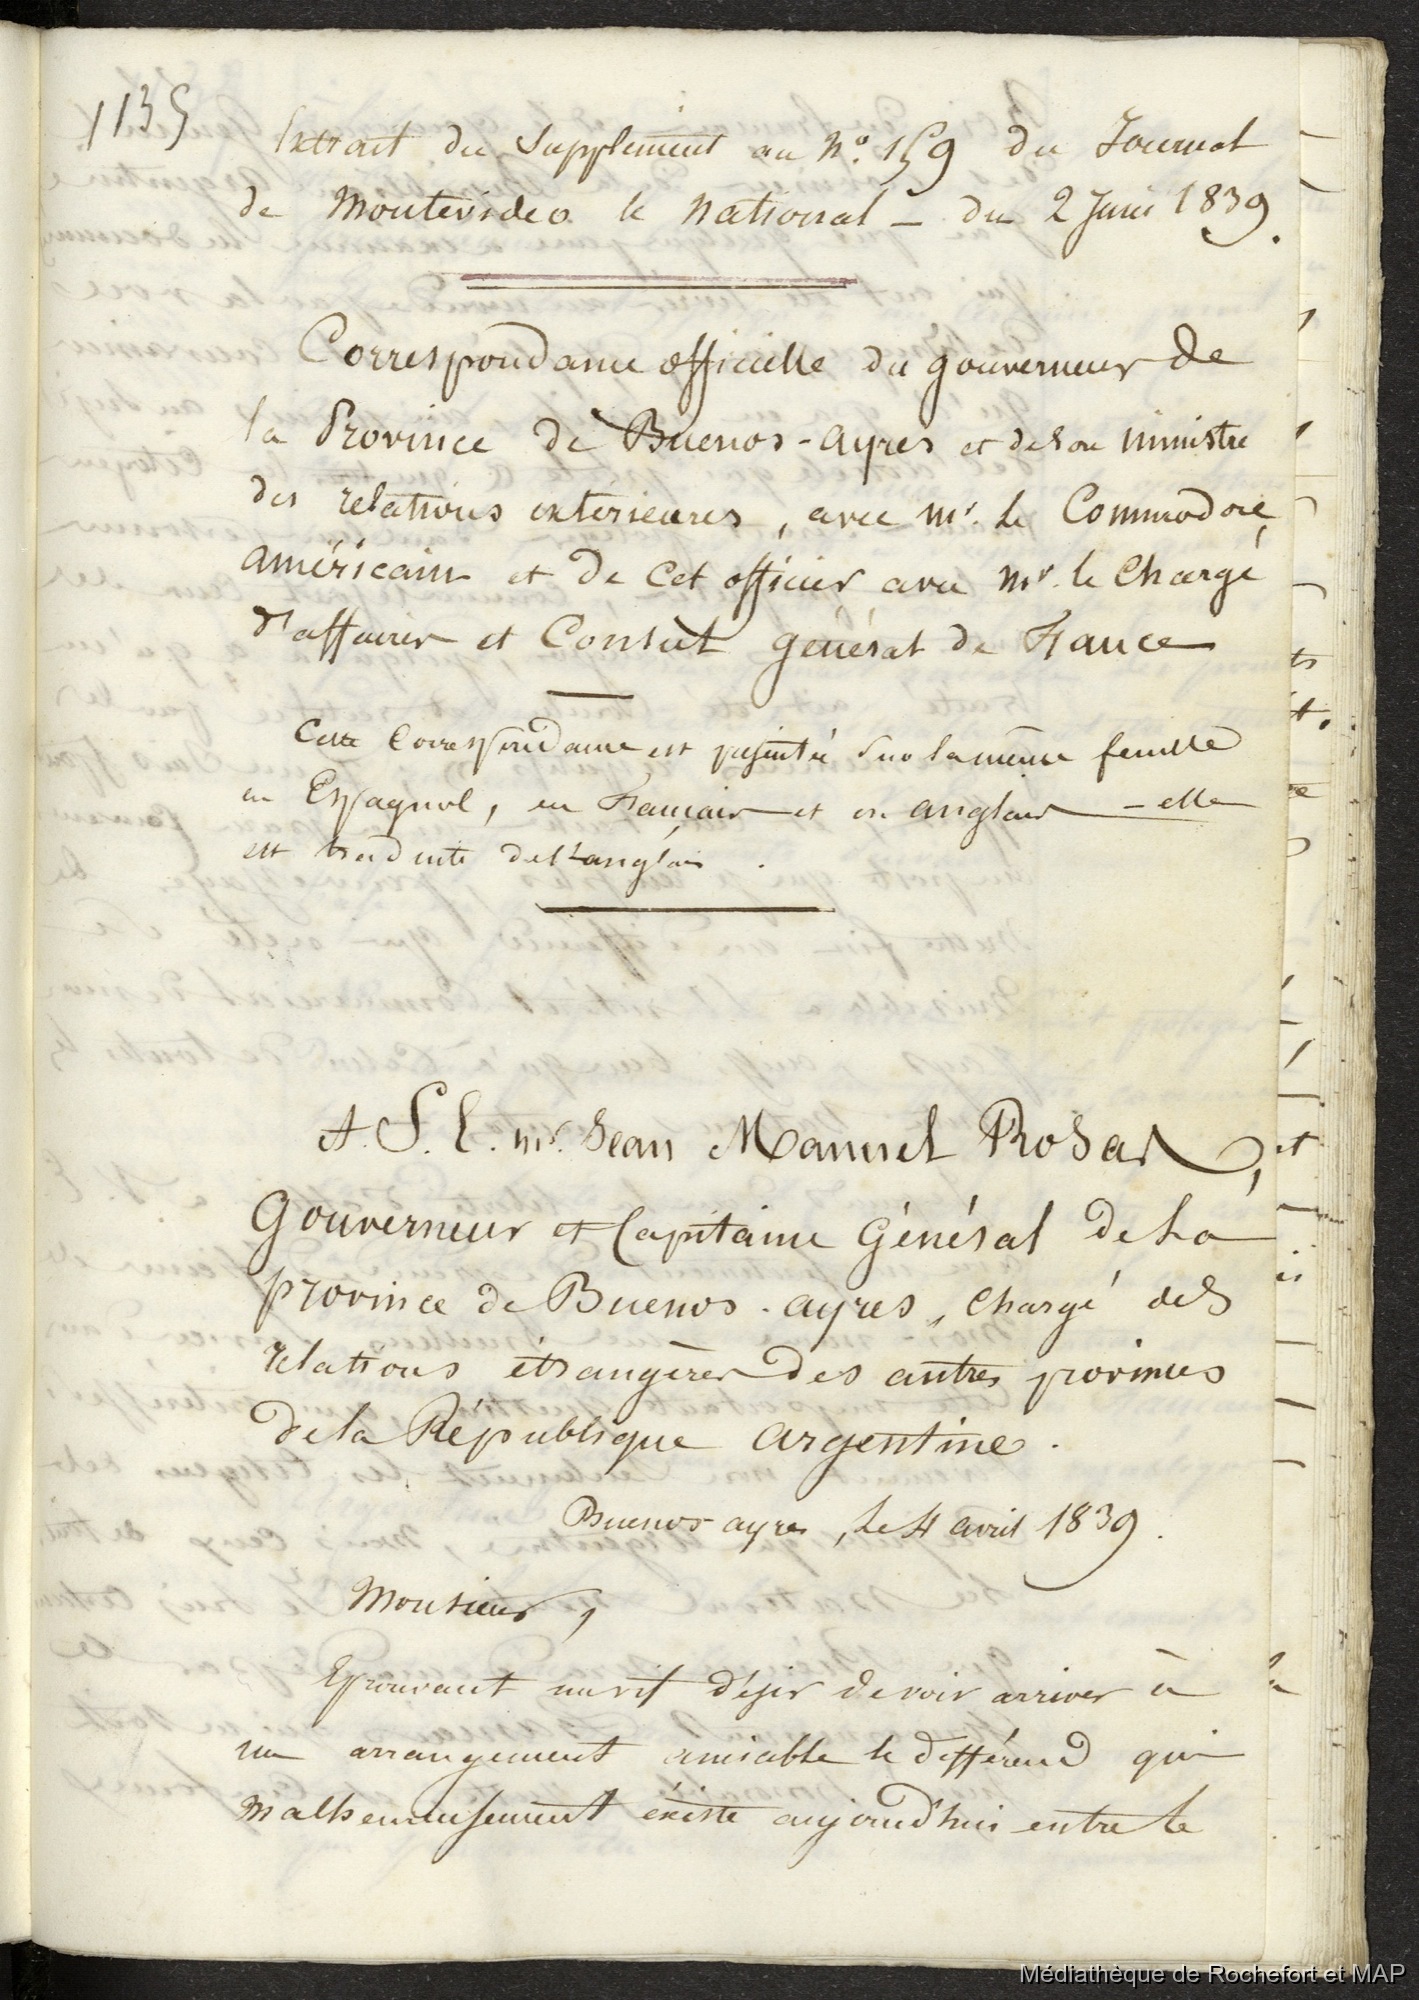 1135
Extrait du Supplément au N.º 159 du Journal
de Montevideo le National _ du 2 Juin 1839.
Correspondance officielle du gouverneur de
la Province de Buenos-ayres et de son ministre
des relations extérieures, avec Mr. le Commodore
américain et de cet officier avec Mr. le Chargé
d'affaires et Consul général de France
Cette Correspondance est présentée sur la même feuille
en Espagnol, en Français et en anglais _ elle
est traduite de l'anglais.
A. S. E. Mr. Jean Manuel Rosas,
Gouverneur et Capitaine Général de la
province de Buenos-ayres, chargé des
relations étrangères des autres provinces
de la République argentine.
Buenos-ayres, le 4 avril 1839.
Monsieur,
Eprouvant un vif désir de voir arriver à
un arrangement amicable le différend qui
malheureusement éxiste aujourd'hui entre le
Médiathèque de Rochefort et MAP